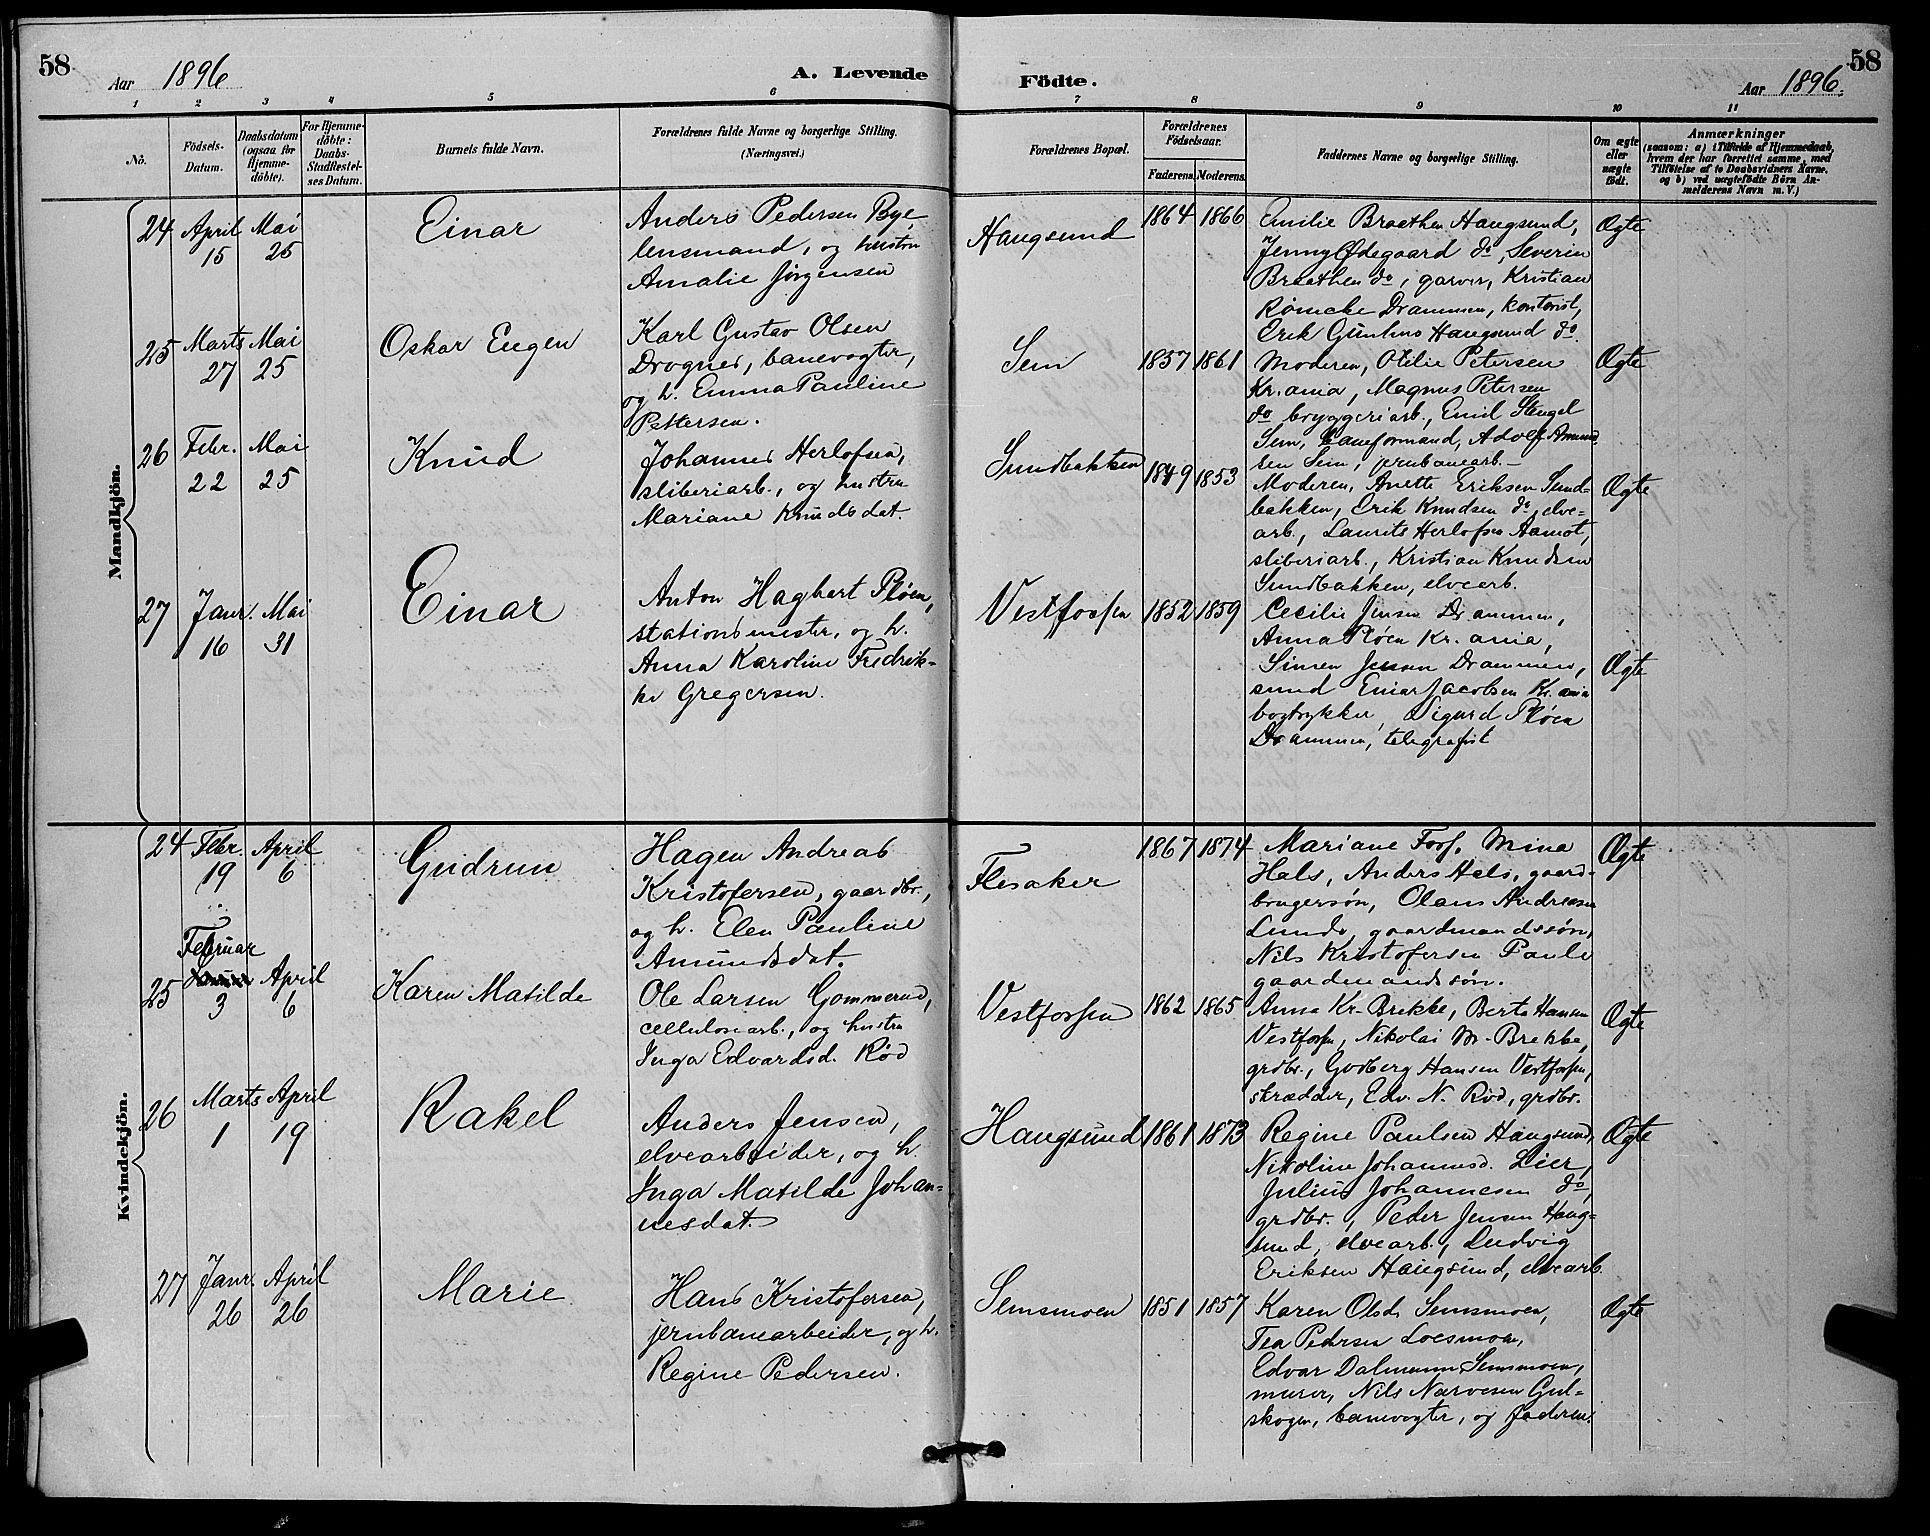 58
Aar 1896
A. Levende
Födte.
Aar 1896.
58
1 2 3 4 5 6 7 8 9 10 11
No.
Födsels-
Datum.
Daabsdatum
(ogsaa for
Hjemme-
döbte).
For Hjemme-
döbte:
Daabs-
Stadfæstel-
ses Datum.
Barnets fulde Navn.
Forældrenes fulde Navne og borgerlige Stilling.
(Næringsvei.)
Forældrenes Bopæl.
Forældrenes
Födselsaar.
Faderens. Moderens.
Faddernes Navne og borgerlige Stilling.
Om ægte
eller
uægte
födt.
Anmærkninger
(saasom: a) i Tilfælde af Hjemmedaab,
hvem der har forrettet samme, med
Tilföielse af to Daabsvidners Navne.
og b) ved uægtefödte Börn An-
melderens Navn m. V.)
Mandkjön.
24 April 15 Mai 25
Einar
Anders Pedersen Bye,
lensmand, og hustru
Amalie Jörgensen
Haugsund
1864 1866
Emilie Braathen Haugsund,
Jenny Ødegaard do, Severin
Braathen do, garver, Kristian
Römcke Drammen, kontorist,
Erik Haugsund do.
Ægte
25 Marts 27 Mai 25
Oskar Eugen
Karl Gustav Olsen
Drogner, banevogter,
og h. Emma Pauline
Pettersen.
Sem
1857 1861
Moderen, Otilie Petersen
Kr.ania, Magnus Petersen
do bryggeriarb., Emil Stengel
Sem, baneformand, Adolf Amund
sen Sem, jernbanearb.
Ægte
26 Febr. 22 Mai 25
Knud
Johannes Herlofsen,
sliberiarb., og hustru
Mariane Knudsdat.
Sundbakken
1849 1853
Moderen, Anette Eriksen Sund-
bakken, Erik Knudsen do, elve-
arb., Laurits Herlofsen Aamot,
sliberiarb., Kristian Knudsen
Sundbakken, elvearb.
Ægte
27 Janr. 16 Mai 31
Einar
Anton Hagbart Plöen,
stationsmester, og h.
Anna Karoline Fredrik-
ke Gregersen.
Vestfossen
1852 1859
Cecilie Jensen Drammen,
Anna Plöen Kr.ania,
Simen Jensen Drammen,
Einar Jacobsen Kr.ania
bogtrykker, Sigurd Plöen
Drammen, telegrafist
Ægte
Kvindekjön.
24 Febr. 19 April 6
Gudrun
Hagen Andreas
Kristofersen, gaardbr.,
og h. Elen Pauline
Amundsdat.
Flesaker
1867 1874
Mariane Fors, Mina
Hals, Anders Hals, gaard-
brugersön, Olaus Andreasen
Lunde, gaardmandssön,
Nils Kristofersen Paule
gaardmandssön.
Ægte
25 Februar 3 April 6
Karen Matilde
Ole Larsen Gommerud,
cellulosearb., og hustru
Inga Edvardsd. Röd
Vestfossen
1862 1865
Anna Kr. Brekke, Berte Hansen
Vestfossen, Nikolai M. Brekke,
grdbr., Gudberg Hansen Vestfossen,
skrædder, Edv. N. Röd, grdbr.
Ægte
26 Marts 1 April 19
Rakel
Anders Jensen,
elvearbeider, og h.
Inga Matilde Johan-
nesdat.
Haugsund
1861 1873
Regine Paulsen Haugsund,
Nikoline Johannesd. Lier,
Julius Johannesen do,
grdbr., Peder Jensen Haug-
sund, elvearb., Ludvig
Eriksen Haugsund, elvearb.
Ægte
27 Janr. 26 April 26
Marie
Hans Kristofersen,
jernbanearbeider, og h.
Regine Pedersen.
Semsmoen
1851 1857
Karen Olsd. Semsmoen,
Tea Pedersen Loesmoen,
Edvar Dalmann Semsmoen,
murer, Nils Narvesen Gul-
skogen, banevogter, og faderen.
Ægte